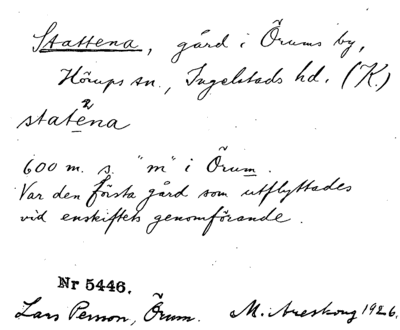 Stattena, gård i Örums by,
Hörups sn., Ingelstads hd. (K.)
statena
600 m. s. "m" i Örum.
Var den första gård som utflyttades
vid enskiftets genomförande.
Nr 5446.
Lars Persson, Örum. M. Areskoug 1926.